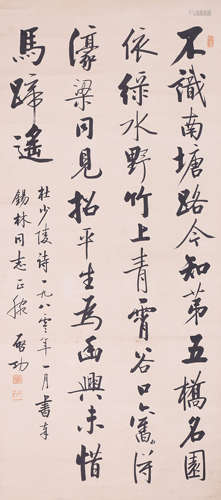 不識南塘路今知第五橋名園
依綠水野竹上青霄谷口舊得
濠梁同見招平生為幽興未惜
馬蹄遙
杜少陵詩一九八零年一月書奉
錫林同志正腕
啟功